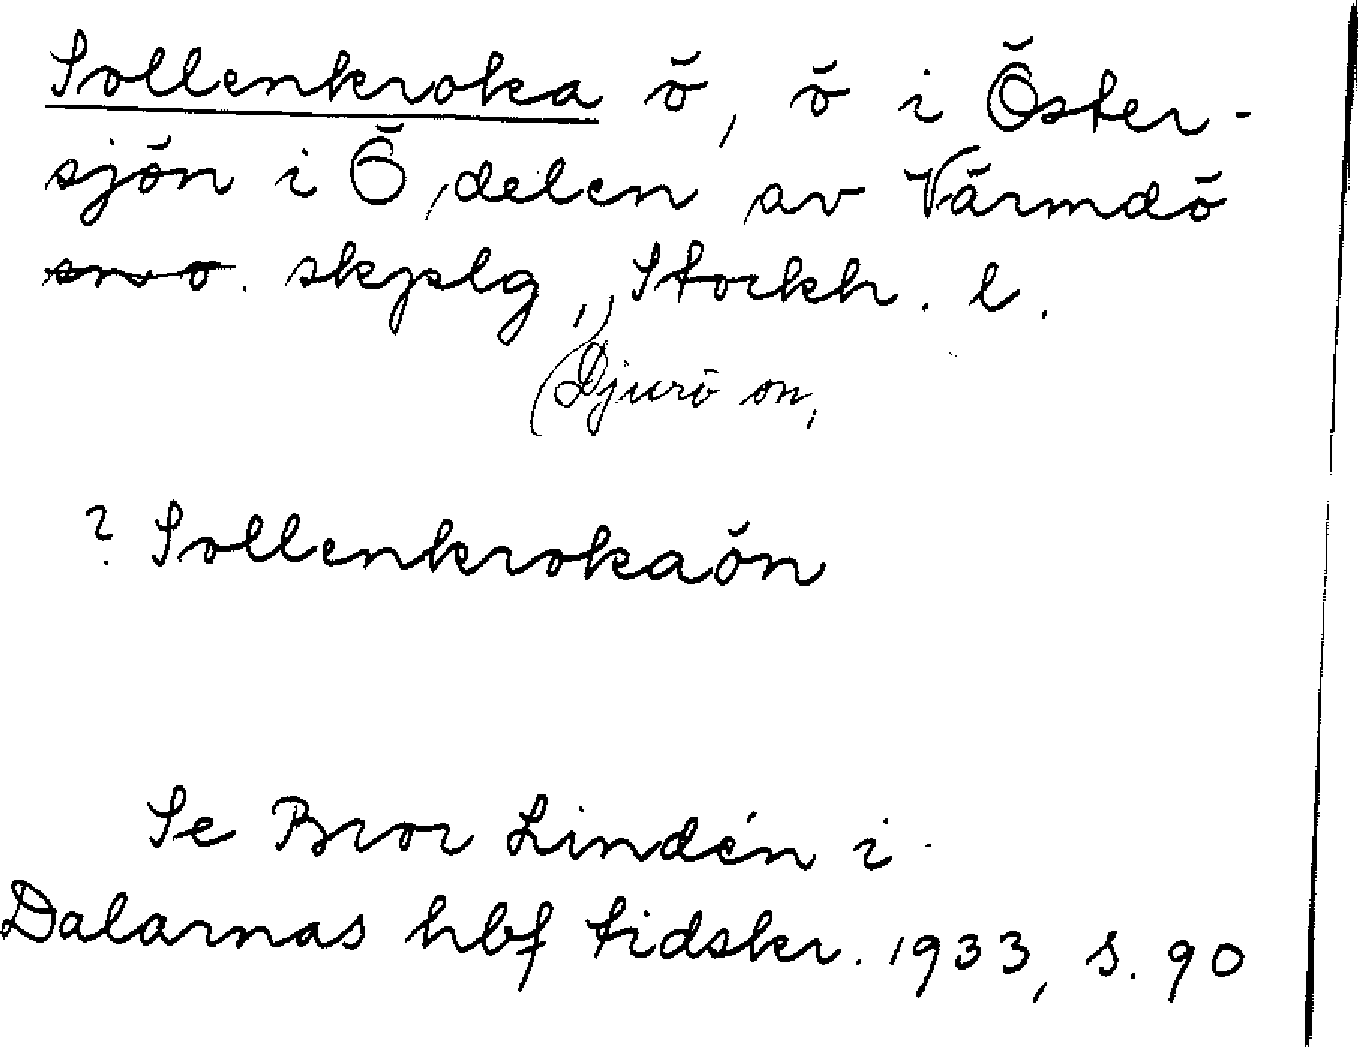 Sollenkroka ö, ö i Öster-
sjön i Ö delen av Värmdö
skplg, Stockh. l.
(Djurö sn,
? Sollenkrokaön
Se Bror Lindén i
Dalarnas hbf tidskr. 1933, s. 90